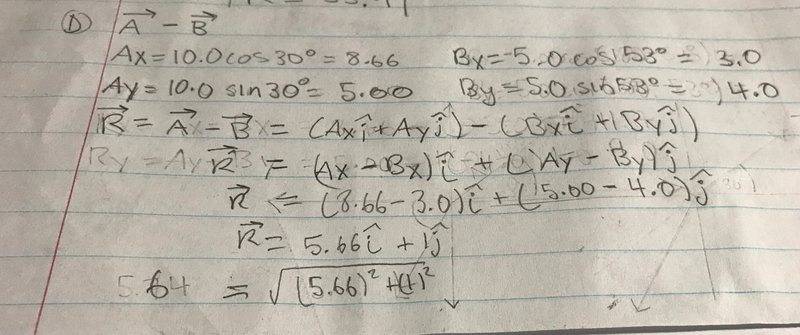 D A⃗ - B⃗
Ax = 10.0 cos 30° = 8.66 Bx = 5.0 cos 53° = 3.0
Ay = 10.0 sin 30° = 5.00 By = 5.0 sin 53° = 4.0
R⃗ = A⃗ - B⃗ = (Ax î + Ay ĵ) - (Bx î + By ĵ)
R⃗ = (Ax - Bx) î + (Ay - By) ĵ
R⃗ = (8.66 - 3.0) î + (5.00 - 4.0) ĵ
R⃗ = 5.66 î + 1 ĵ
5.64 = √(5.66)² + (1)²